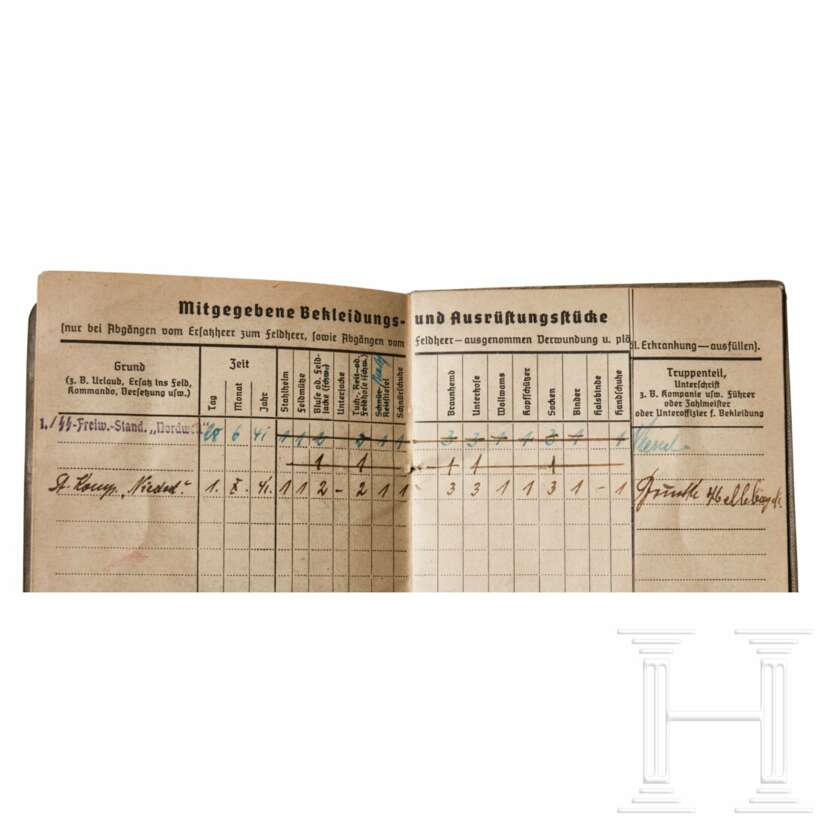 Mitgegebene Bekleidungs- und Ausrüstungsstücke
(nur bei Abgängen vom Ersatzheer zum Feldheer, sowie Abgängen vom Feldheer — ausgenommen Verwundung u. plö l. Erkrankung — ausfüllen).
Grund
(z. B. Urlaub, Ersatz ins Feld,
Kommando, Versetzung usw.)
Zeit
Tag
Monat
Jahr
Stahlhelm
Feldmütze
Bluse od. Feld-
jacke (schw.)
Unterjacke
Tuch-, Reit- od.
Feldhose (schw.)
Schnür-
Reitstiefel
Schnürschuhe
Braunhemd
Unterhose
Wollwams
Kopfschützer
Socken
Binder
Halsbinde
Handschuhe
Truppenteil,
Unterschrift
z. B. Kompanie usw. Führer
oder Zahlmeister
oder Unteroffizier f. Bekleidung
1./SS-Freiw.-Stand. „Nordwest" 28 6 41 1 1 2 2 1 1 3 3 1 1 3 1 1
1 1 1 1 1
St. Komp. „Niederl." 1. X. 41. 1 1 2 – 2 1 1 3 3 1 1 3 1 – 1
H